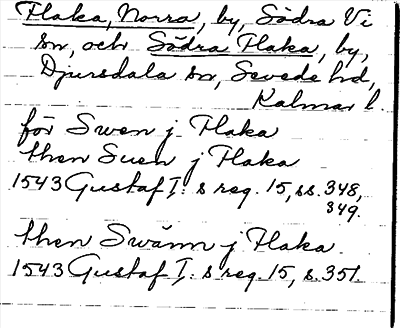 Flaka, Norra, by, Södra Vi
sn, och Södra Flaka, by,
Djursdala sn, Sevede hd,
Kalmar l.
för Swen j Flaka
then Suen j Flaka
1543 Gustaf I: s reg. 15, ss. 348,
349.
then Swänn j Flaka.
1543 Gustaf I: s reg. 15, s. 351.